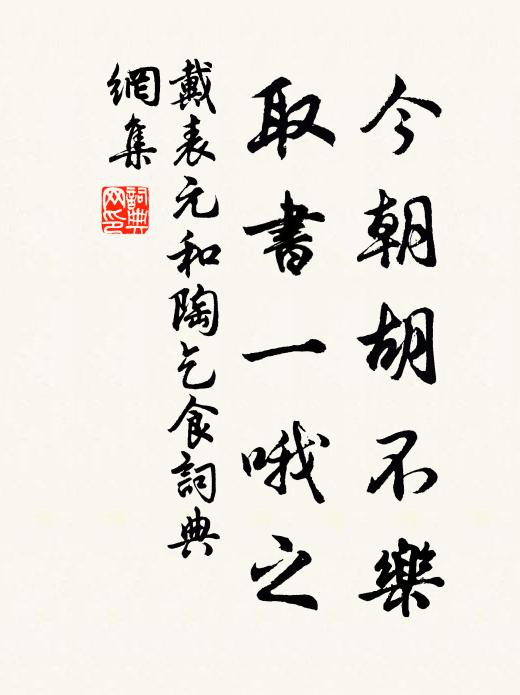 今朝胡不樂
取書一哦之
戴表元和陶乞食詞典
網集
詞典
网印